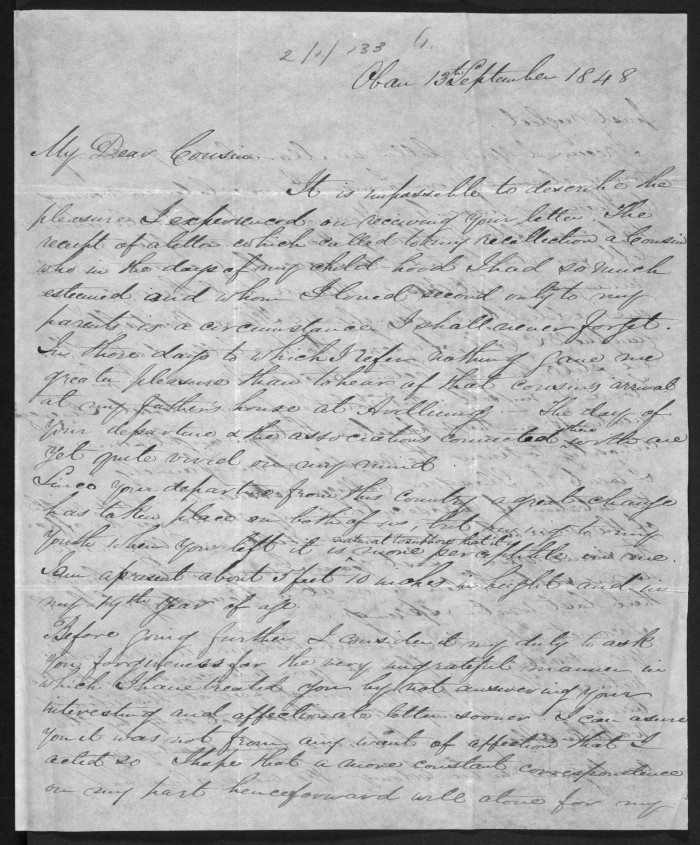 2/1/133 G.
Oban 13th September 1848
My Dear Cousin.
It is impossible to describe the
pleasure I experienced on receiving your letter. The
receipt of a letter which called to my recollection a Cousin
who in the days of my child hood I had so much
esteemed and whom I loved second only to my
parents is a circumstance I shall never forget.
In those days to which I refer nothing gave me
greater pleasure than to hear of that cousins arrival
at my father's house at The day of
your departure & the associations connected there with are
yet quite vivid on my mind.
Since your departure from this country a great change
has taken place on both of us but to my
youth when you left it is natural to suppose that it is more perceptible in me.
I am apresent about 5 feet 10 inches in height and in
my 19th year of age.
Before going further I consider it my duty to ask
your forgiveness for the very ungrateful manner in
which I have treated you by not answering your
interesting and affectionate letter sooner. I can assure
you it was not from any want of affection that I
acted so I hope that a more constant correspondence
on my part henceforward will atone for my